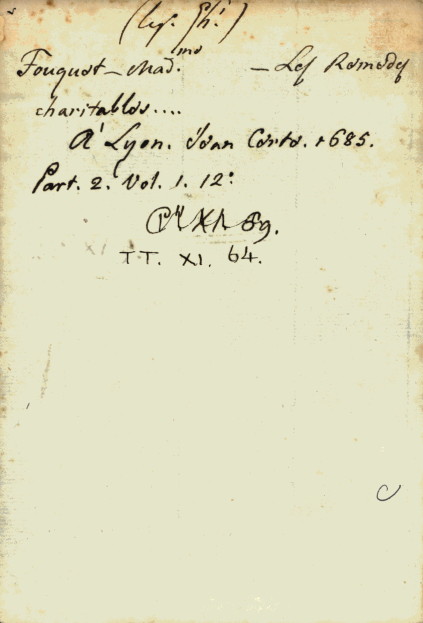 (leg. Gh.)
Fouquet - Mad.me - Les Remedes
charitables....
A' Lyon. Jean Certe. 1685.
Part. 2. Vol. 1. 12:
XI 69.
TT. XI. 64.